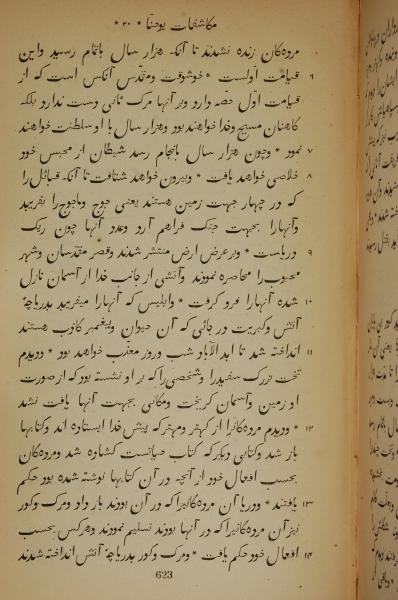 مکاشفات یوحنّا * ۲۰ *
مردهکان زنده نشدند تا آنکه هزار سال باتمام رسید واین
۶ قیامت اولست * خوشوقت ومقدّس آنکس است که از
قیامت اوّل حصّه دارد وبر آنها مرک ثانی دست ندارد بلکه
کاهنان مسیح وخدا خواهند بود وهزار سال با او سلطنت خواهند
۷ نمود * وچون هزار سال بانجام رسد شیطان از محبس خود
۸ خلاصی خواهد یافت * وبیرون خواهد شتافت تا آنکه قبائل را
که در چهار جهت زمین هستند یعنی جوج وماجوج را بفریبد
وآنهارا بجهت جنک فراهم آرد وعدد آنها چون ریک
۹ دریاست * وبر عرض ارض منتشر شدند وقصر مقدّسان وشهر
محبوب را محاصره نمودند وآتشی از جانب خدا از آسمان نازل
۱۰ شده آنهارا فرو کرفت * وابلیس که آنهارا میفریبد بدریاچهٔ
آتش وکبریت در جائی که آن حیوان وپیغمبر کاذب هستند
۱۱ انداخته شد تا ابد الآباد شب وروز معذّب خواهد بود * ودیدم
تخت بزرک سفیدرا وشخصی را که بر او نشسته بود که از صورت
او زمین وآسمان کریخت ومکانی بجهت آنها یافت نشد
۱۲ * ودیدم مردهکانرا از کهتر ومهتر که پیش خدا ایستاده اند وکتابها
باز شد وکتابی دیکر که کتاب حیاتست کشاده شد ومردهکان
بحسب افعال خود از آنچه در آن کتابها نوشته شده بود حکم
۱۳ یافتند * ودریا آن مردهکانیرا که در آن بودند باز داد ومرک وکور
نیز آن مردهکانیرا که در آنها بودند تسلیم نمودند وهر کس بحسب
۱۴ افعال خود حکم یافت * ومرک وکور بدریاچهٔ آتش انداخته شدند
623